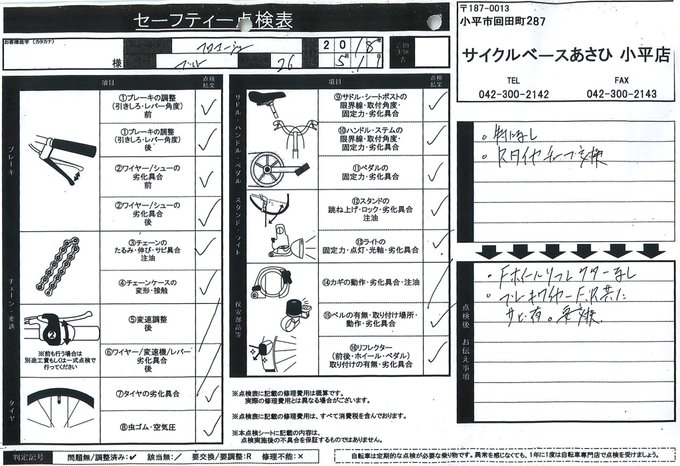 セーフティー点検表
お客様苗字（カタカナ）
様 26 2018年 5月 1日
項目 点検結果
ブレーキ
①ブレーキの調整（引きしろ・レバー角度）前 ✓
①ブレーキの調整（引きしろ・レバー角度）後 ✓
②ワイヤー/シューの劣化具合 前
②ワイヤー/シューの劣化具合 後
チェーン・変速
③チェーンのたるみ・伸び・サビ具合 注油 ✓
④チェーンケースの変形・接触 ✓
⑤変速調整 後
※前も行う場合は
別途工賃もしくは一式点検で
行ってください
⑥ワイヤー/変速機/レバー劣化具合 後
タイヤ
⑦タイヤの劣化具合 ✓
⑧虫ゴム・空気圧 ✓
項目 点検結果
サドル・ハンドル・ペダル
⑨サドル・シートポストの限界線・取付角度・固定力・劣化具合 ✓
⑩ハンドル・ステムの限界線・取付角度・固定力・劣化具合 ✓
⑪ペダルの固定力・劣化具合 ✓
スタンド
⑫スタンドの跳ね上げ・ロック・劣化具合 注油 ✓
ライト
⑬ライトの固定力・点灯・光軸・劣化具合 ✓
保安部品等
⑭カギの動作・劣化具合・注油
⑮ベルの有無・取り付け場所・動作・劣化具合 ✓
⑯リフレクター（前後・ホイール・ペダル）取り付けの有無・劣化具合 ✓
※点検表に記載の修理費用は概算です。
実際の修理費用とは異なる場合がございます。
※点検表に記載の修理費用は、すべて消費税を含んでおります。
※本点検シートに記載の内容は、
点検実施後の不具合を保証するものではありません。
判定記号 問題無/調整済み：✓ 該当無：／ 要交換/要調整：R 修理不能：×
〒187-0013
小平市回田町287
サイクルベースあさひ 小平店
TEL FAX
042-300-2142 042-300-2143
・特になし
・Rタイヤチューブ交換
点検後 お伝え事項
・Fホイールリフレクターなし
・ブレーキワイヤーF.R共に
サビ有。要交換
自転車は定期的な点検が必要な乗り物です。異常を感じなくても、1年に1度は自転車専門店で点検を受けましょう。